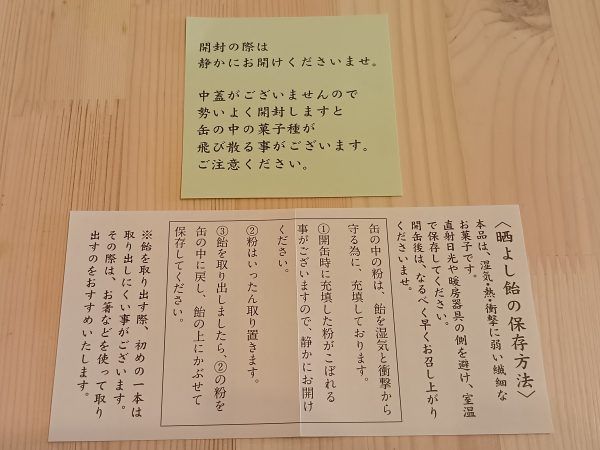 開封の際は
静かにお開けくださいませ。
中蓋がございませんので
勢いよく開封しますと
缶の中の菓子種が
飛び散る事がございます。
ご注意ください。
〈晒よし飴の保存方法〉
本品は、湿気・熱・衝撃に弱い繊細な
お菓子です。
直射日光や暖房器具の側を避け、室温
で保存してください。
開缶後は、なるべく早くお召し上がり
くださいませ。
缶の中の粉は、飴を湿気と衝撃から
守る為に、充填しております。
①開缶時に充填した粉がこぼれる
事がございますので、静かにお開け
ください。
②粉はいったん取り置きます。
③飴を取り出しましたら、②の粉を
缶の中に戻し、飴の上にかぶせて
保存してください。
※飴を取り出す際、初めの一本は
取り出しにくい事がございます。
その際は、お箸などを使って取り
出すのをおすすめいたします。